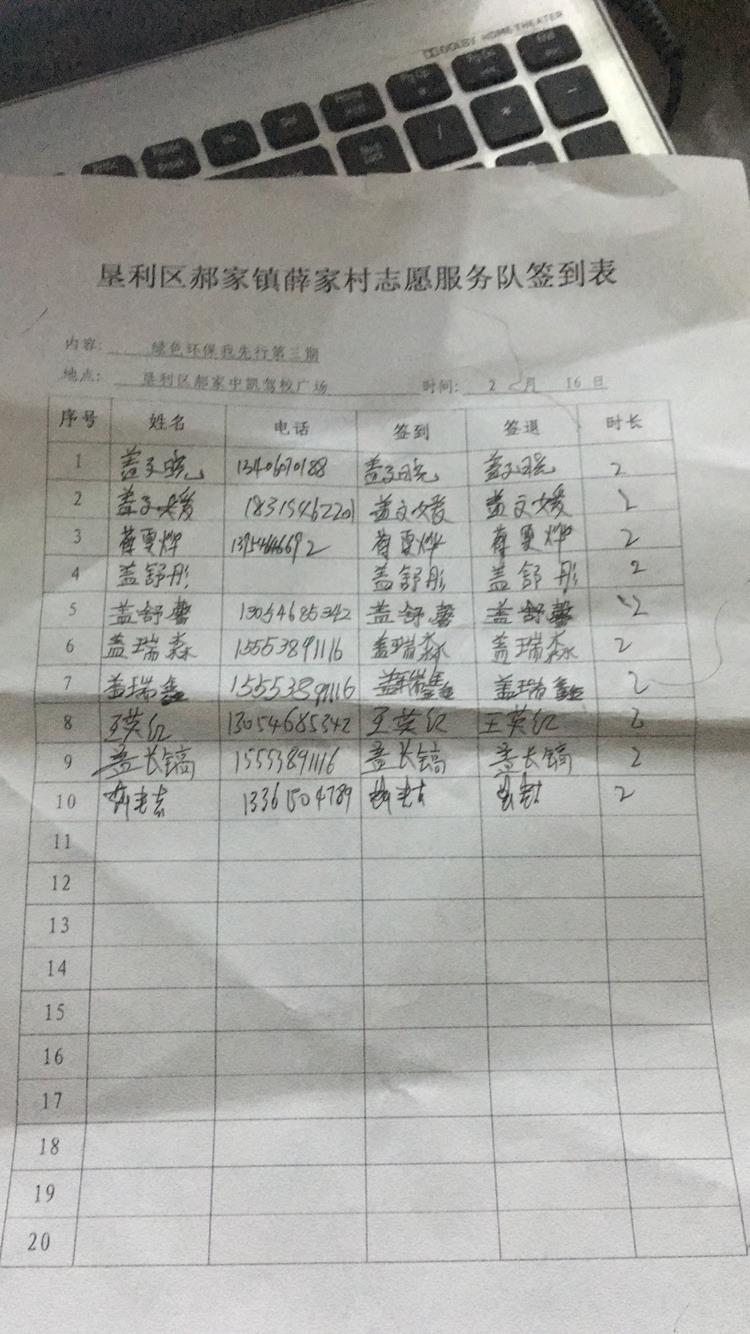 DOLBY HOME THEATER
垦利区郝家镇薛家村志愿服务队签到表
内容: 绿色环保我先行第三期
地点: 垦利区郝家中凯驾校广场 时间: 2 月 16 日
序号 姓名 电话 签到 签退 时长
1 盖文晓 1340670188 盖文晓 盖文晓 2
2 盖文媛 18315462201 盖文媛 盖文媛 2
3 夏烨 夏烨 夏烨 2
4 盖舒彤 盖舒彤 盖舒彤 2
5 盖舒馨 13054685342 盖舒馨 盖舒馨 2
6 盖瑞森 15553891116 盖瑞森 盖瑞森 2
7 盖瑞鑫 15553891116 盖瑞鑫 盖瑞鑫 2
8 王英红 13054685342 王英红 王英红 2
9 盖长镐 15553891116 盖长镐 盖长镐 2
10 13361504789 2
11
12
13
14
15
16
17
18
19
20